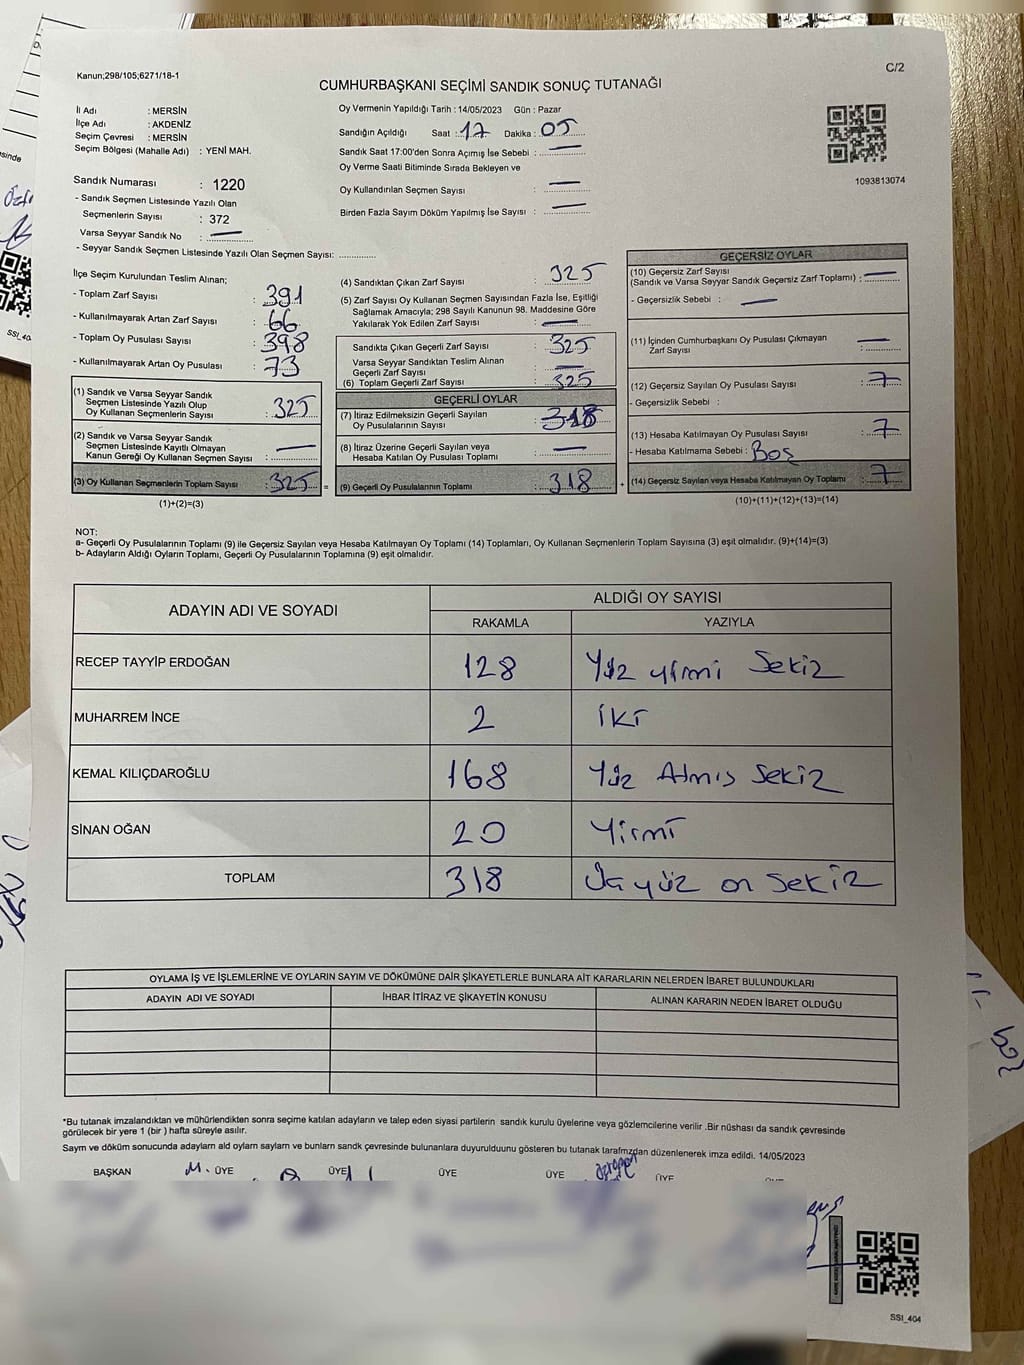 Kanun;298/105;6271/18-1
C/2
CUMHURBAŞKANI SEÇİMİ SANDIK SONUÇ TUTANAĞI
İl Adı : MERSİN
İlçe Adı : AKDENİZ
Seçim Çevresi : MERSİN
Seçim Bölgesi (Mahalle Adı) : YENİ MAH.
Sandık Numarası : 1220
- Sandık Seçmen Listesinde Yazılı Olan
Seçmenlerin Sayısı : 372
Varsa Seyyar Sandık No : —
- Seyyar Sandık Seçmen Listesinde Yazılı Olan Seçmen Sayısı: ..............
Oy Vermenin Yapıldığı Tarih : 14/05/2023 Gün : Pazar
Sandığın Açıldığı Saat : 17 Dakika : 05
Sandık Saat 17:00'den Sonra Açımış İse Sebebi : —
Oy Verme Saati Bitiminde Sırada Bekleyen ve
Oy Kullandırılan Seçmen Sayısı : —
Birden Fazla Sayım Döküm Yapılmış İse Sayısı : —
1093813074
İlçe Seçim Kurulundan Teslim Alınan;
- Toplam Zarf Sayısı : 391
- Kullanılmayarak Artan Zarf Sayısı : 66
- Toplam Oy Pusulası Sayısı : 398
- Kullanılmayarak Artan Oy Pusulası : 73
(1) Sandık ve Varsa Seyyar Sandık
Seçmen Listesinde Yazılı Olup
Oy Kullanan Seçmenlerin Sayısı : 325
(2) Sandık ve Varsa Seyyar Sandık
Seçmen Listesinde Kayıtlı Olmayan
Kanun Gereği Oy Kullanan Seçmen Sayısı : —
(3) Oy Kullanan Seçmenlerin Toplam Sayısı : 325 =
(1)+(2)=(3)
(4) Sandıktan Çıkan Zarf Sayısı : 325
(5) Zarf Sayısı Oy Kullanan Seçmen Sayısından Fazla İse, Eşitliği
Sağlamak Amacıyla; 298 Sayılı Kanunun 98. Maddesine Göre
Yakılarak Yok Edilen Zarf Sayısı : —
Sandıkta Çıkan Geçerli Zarf Sayısı : 325
Varsa Seyyar Sandıktan Teslim Alınan
Geçerli Zarf Sayısı : —
(6) Toplam Geçerli Zarf Sayısı : 325
GEÇERLİ OYLAR
(7) İtiraz Edilmeksizin Geçerli Sayılan
Oy Pusulalarının Sayısı : 318
(8) İtiraz Üzerine Geçerli Sayılan veya
Hesaba Katılan Oy Pusulası Toplamı : —
(9) Geçerli Oy Pusulalarının Toplamı : 318 +
GEÇERSİZ OYLAR
(10) Geçersiz Zarf Sayısı
(Sandık ve Varsa Seyyar Sandık Geçersiz Zarf Toplamı) : —
- Geçersizlik Sebebi : —
(11) İçinden Cumhurbaşkanı Oy Pusulası Çıkmayan
Zarf Sayısı : —
(12) Geçersiz Sayılan Oy Pusulası Sayısı : 7
- Geçersizlik Sebebi :
(13) Hesaba Katılmayan Oy Pusulası Sayısı : 7
- Hesaba Katılmama Sebebi : Boş
(14) Geçersiz Sayılan veya Hesaba Katılmayan Oy Toplamı : 7
(10)+(11)+(12)+(13)=(14)
NOT:
a- Geçerli Oy Pusulalarının Toplamı (9) ile Geçersiz Sayılan veya Hesaba Katılmayan Oy Toplamı (14) Toplamları, Oy Kullanan Seçmenlerin Toplam Sayısına (3) eşit olmalıdır. (9)+(14)=(3)
b- Adayların Aldığı Oyların Toplamı, Geçerli Oy Pusulalarının Toplamına (9) eşit olmalıdır.
ADAYIN ADI VE SOYADI ALDIĞI OY SAYISI
RAKAMLA YAZIYLA
RECEP TAYYİP ERDOĞAN 128 Yüz yirmi Sekiz
MUHARREM İNCE 2 iki
KEMAL KILIÇDAROĞLU 168 Yüz Atmış Sekiz
SİNAN OĞAN 20 Yirmi
TOPLAM 318 Üçyüz on Sekiz
OYLAMA İŞ VE İŞLEMLERİNE VE OYLARIN SAYIM VE DÖKÜMÜNE DAİR ŞİKAYETLERLE BUNLARA AİT KARARLARIN NELERDEN İBARET BULUNDUKLARI
ADAYIN ADI VE SOYADI İHBAR İTİRAZ VE ŞİKAYETİN KONUSU ALINAN KARARIN NEDEN İBARET OLDUĞU
*Bu tutanak imzalandıktan ve mühürlendikten sonra seçime katılan adayların ve talep eden siyasi partilerin sandık kurulu üyelerine veya gözlemcilerine verilir .Bir nüshası da sandık çevresinde
görülecek bir yere 1 (bir ) hafta süreyle asılır.
Sayım ve döküm sonucunda adaylarn ald oylarn saylarn ve bunlarn sandk çevresinde bulunanlara duyurulduunu gösteren bu tutanak tarafmzdan düzenlenerek imza edildi. 14/05/2023
BAŞKAN M. ÜYE ÜYE ÜYE ÜYE ÜYE
SSI_404